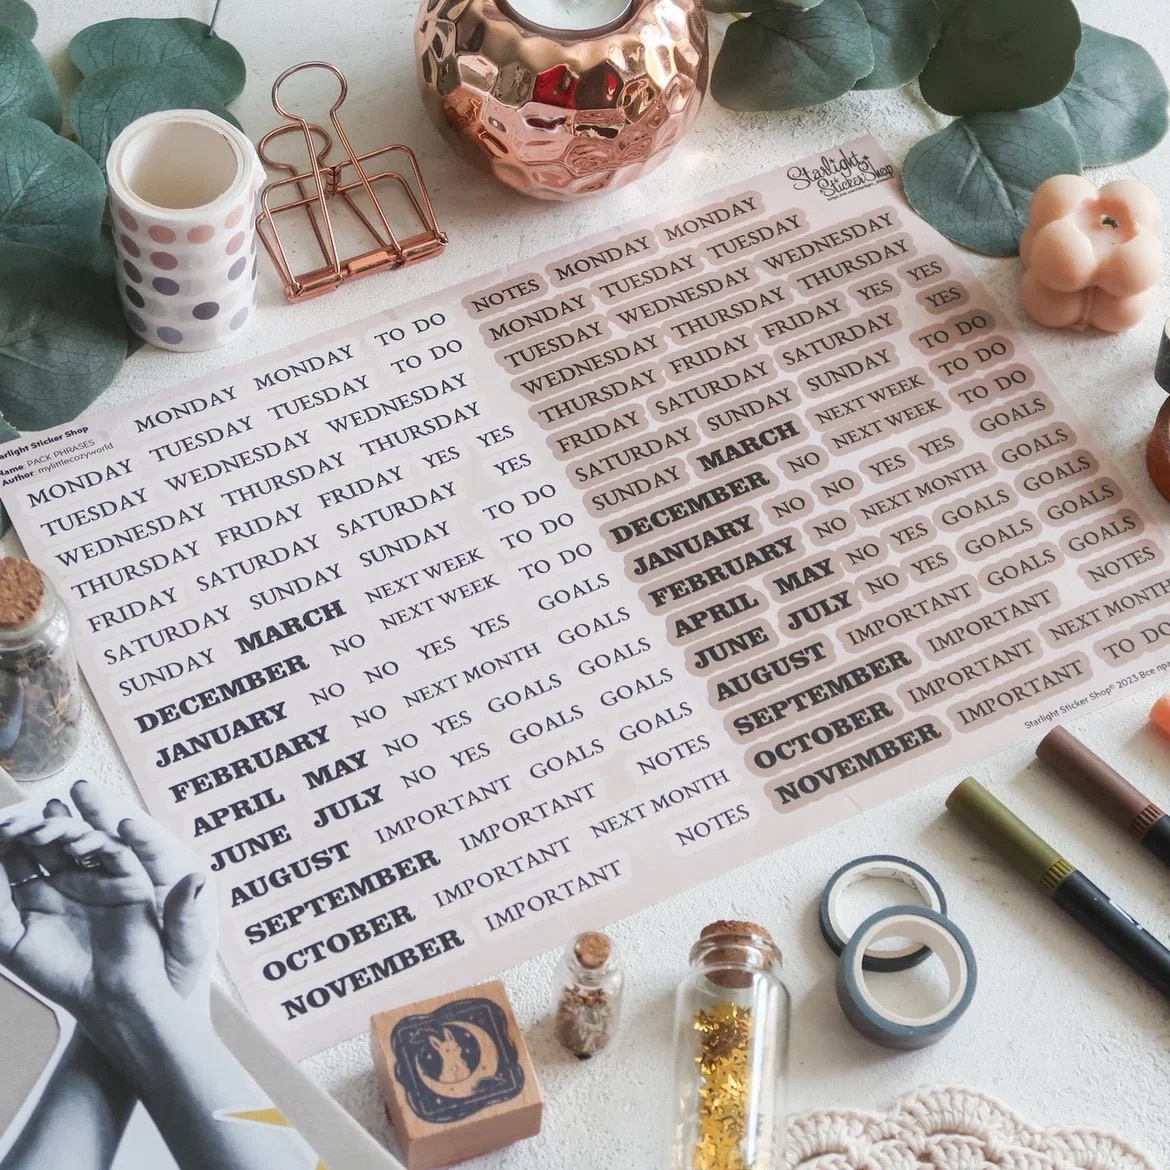 Starlight Sticker Shop
PACK PHRASES
Author: mylittlecozyworld
MONDAY MONDAY TO DO
MONDAY TUESDAY TUESDAY TO DO
TUESDAY WEDNESDAY WEDNESDAY
WEDNESDAY THURSDAY THURSDAY
THURSDAY FRIDAY FRIDAY YES YES
FRIDAY SATURDAY SATURDAY YES
SATURDAY SUNDAY SUNDAY TO DO
SUNDAY MARCH NEXT WEEK TO DO
DECEMBER NO NEXT WEEK TO DO
JANUARY NO NO YES YES GOALS
FEBRUARY NO NEXT MONTH GOALS
APRIL MAY NO YES GOALS GOALS
JUNE JULY NO YES GOALS GOALS
AUGUST IMPORTANT GOALS GOALS
SEPTEMBER IMPORTANT NOTES
OCTOBER IMPORTANT NEXT MONTH
NOVEMBER IMPORTANT NOTES
Starlight Sticker Shop
NOTES MONDAY MONDAY
MONDAY TUESDAY TUESDAY
TUESDAY WEDNESDAY WEDNESDAY
WEDNESDAY THURSDAY THURSDAY
THURSDAY FRIDAY FRIDAY YES YES
FRIDAY SATURDAY SATURDAY YES
SATURDAY SUNDAY SUNDAY TO DO
SUNDAY MARCH NEXT WEEK TO DO
DECEMBER NO NEXT WEEK TO DO
JANUARY NO NO YES YES GOALS
FEBRUARY NO NEXT MONTH GOALS
APRIL MAY NO YES GOALS GOALS
JUNE JULY NO YES GOALS GOALS
AUGUST IMPORTANT GOALS GOALS
SEPTEMBER IMPORTANT NOTES
OCTOBER IMPORTANT NEXT MONTH
NOVEMBER IMPORTANT TO DO
Starlight Sticker Shop® 2023 Все